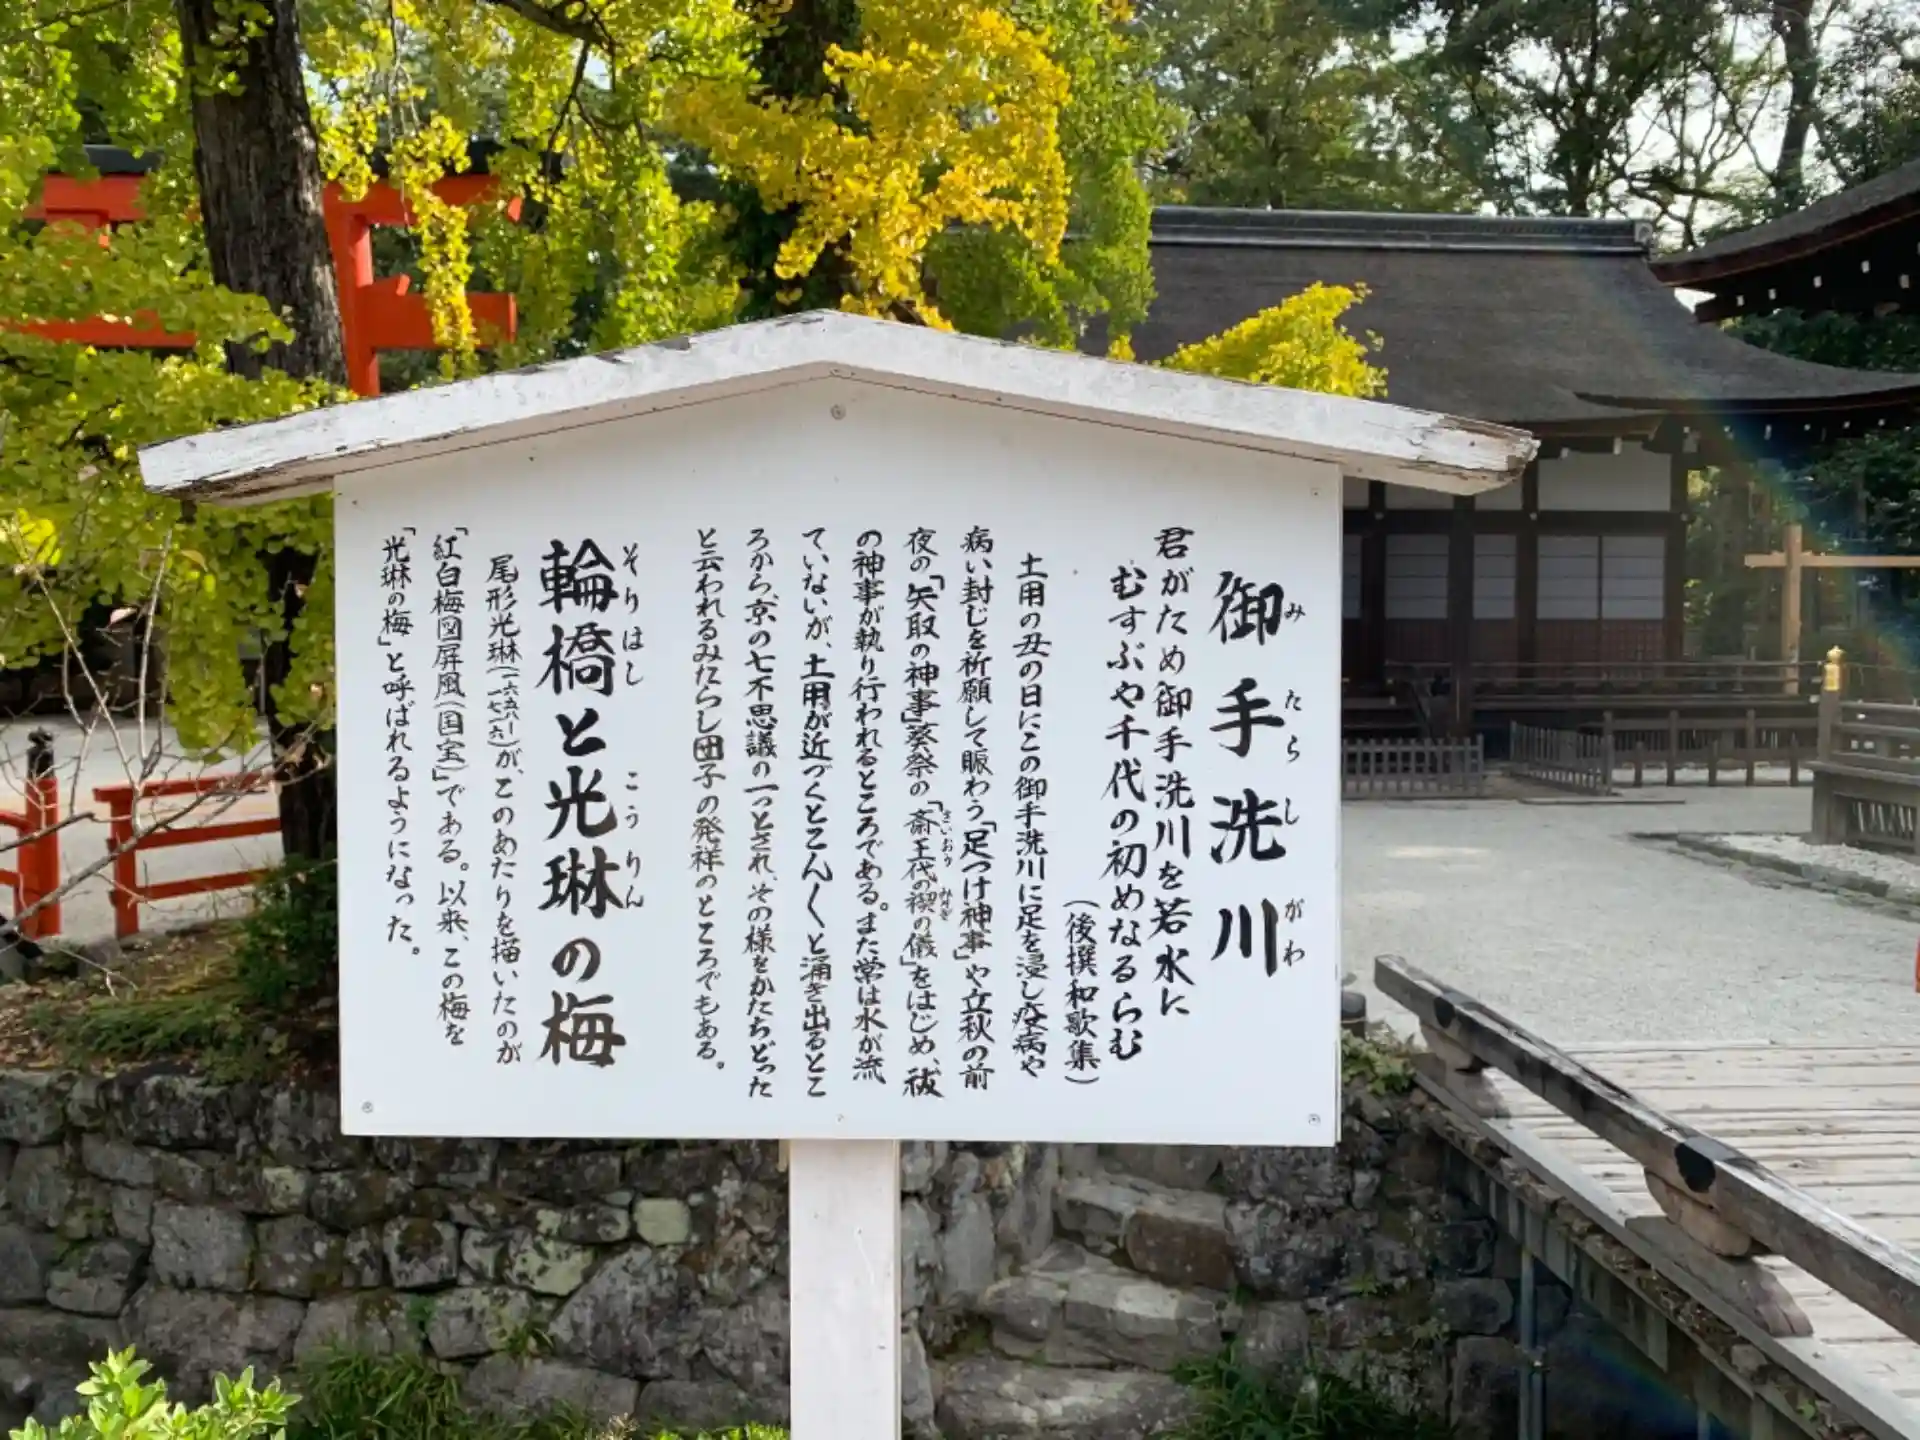 御手洗川
みたらしがわ
君がため御手洗川を若水に
むすぶや千代の初めなるらむ
(後撰和歌集)
土用の丑の日にこの御手洗川に足を浸し疫病や
病い封じを祈願して賑わう「足つけ神事」や立秋の前
夜の「矢取の神事」葵祭の「斎王代の禊の儀」をはじめ、祓
さいおう みそぎ
の神事が執り行われるところである。また常は水が流
ていないが、土用が近づくとこん〱と涌き出るとこ
ろから、京の七不思議の一つとされ、その様をかたちどった
と云われるみたらし団子の発祥のところでもある。
輪橋と光琳の梅
そりはし こうりん
尾形光琳(一六五八ー一七一六)が、このあたりを描いたのが
「紅白梅図屏風(国宝)」である。以来、この梅を
「光琳の梅」と呼ばれるようになった。